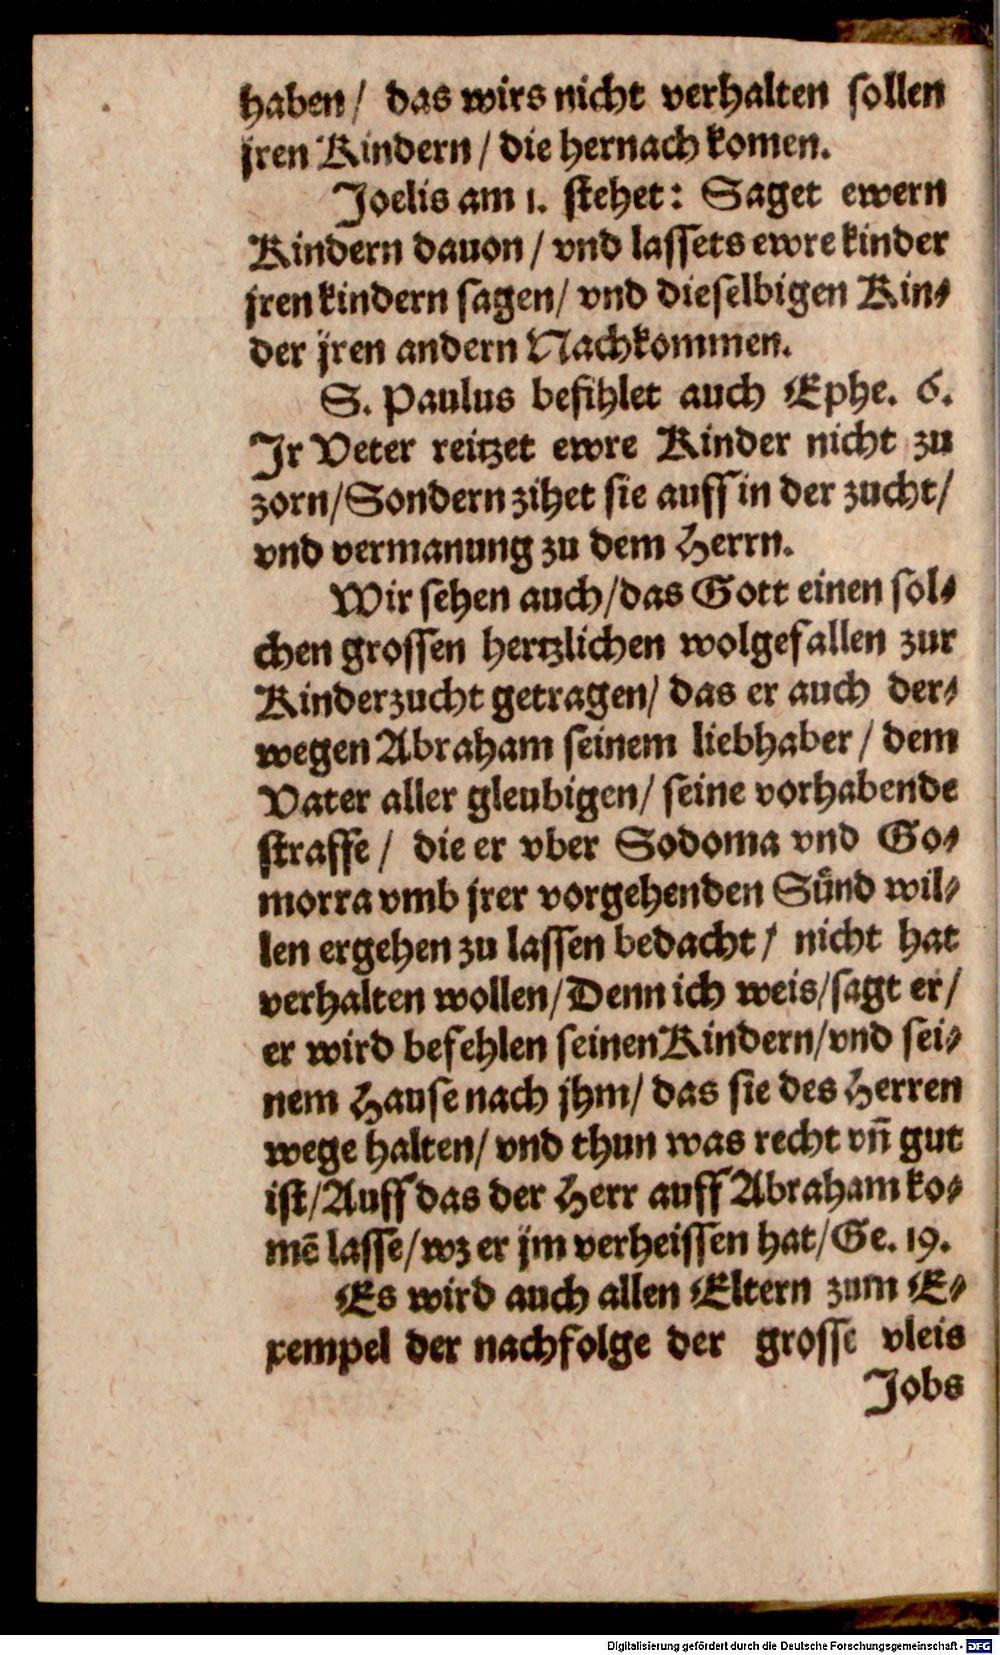 haben/ das wirs nicht verhalten sollen
jren Kindern/ die hernach komen.
Joelis am 1. stehet: Saget ewern
Kindern dauon/ vnd lassets ewre kinder
jren kindern sagen/ vnd dieselbigen Kin-
der jren andern Nachkommen.
S. Paulus befihlet auch Ephe. 6.
Jr Veter reitzet ewre Kinder nicht zu
zorn/Sondern zihet sie auff in der zucht/
vnd vermanung zu dem Herrn.
Wir sehen auch/das Gott einen sol-
chen grossen hertzlichen wolgefallen zur
Kinderzucht getragen/ das er auch der-
wegen Abraham seinem liebhaber/ dem
Vater aller gleubigen/ seine vorhabende
straffe/ die er vber Sodoma vnd Go-
morra vmb jrer vorgehenden Sünd wil-
len ergehen zu lassen bedacht/ nicht hat
verhalten wollen/Denn ich weis/sagt er/
er wird befehlen seinen Kindern/vnd sei-
nem Hause nach jhm/ das sie des Herren
wege halten/ vnd thun was recht vñ gut
ist/Auff das der Herr auff Abraham ko-
mē lasse/wz er jm verheissen hat/Ge. 19.
Es wird auch allen Eltern zum E-
xempel der nachfolge der grosse vleis
Jobs
Digitalisierung gefördert durch die Deutsche Forschungsgemeinschaft - DFG